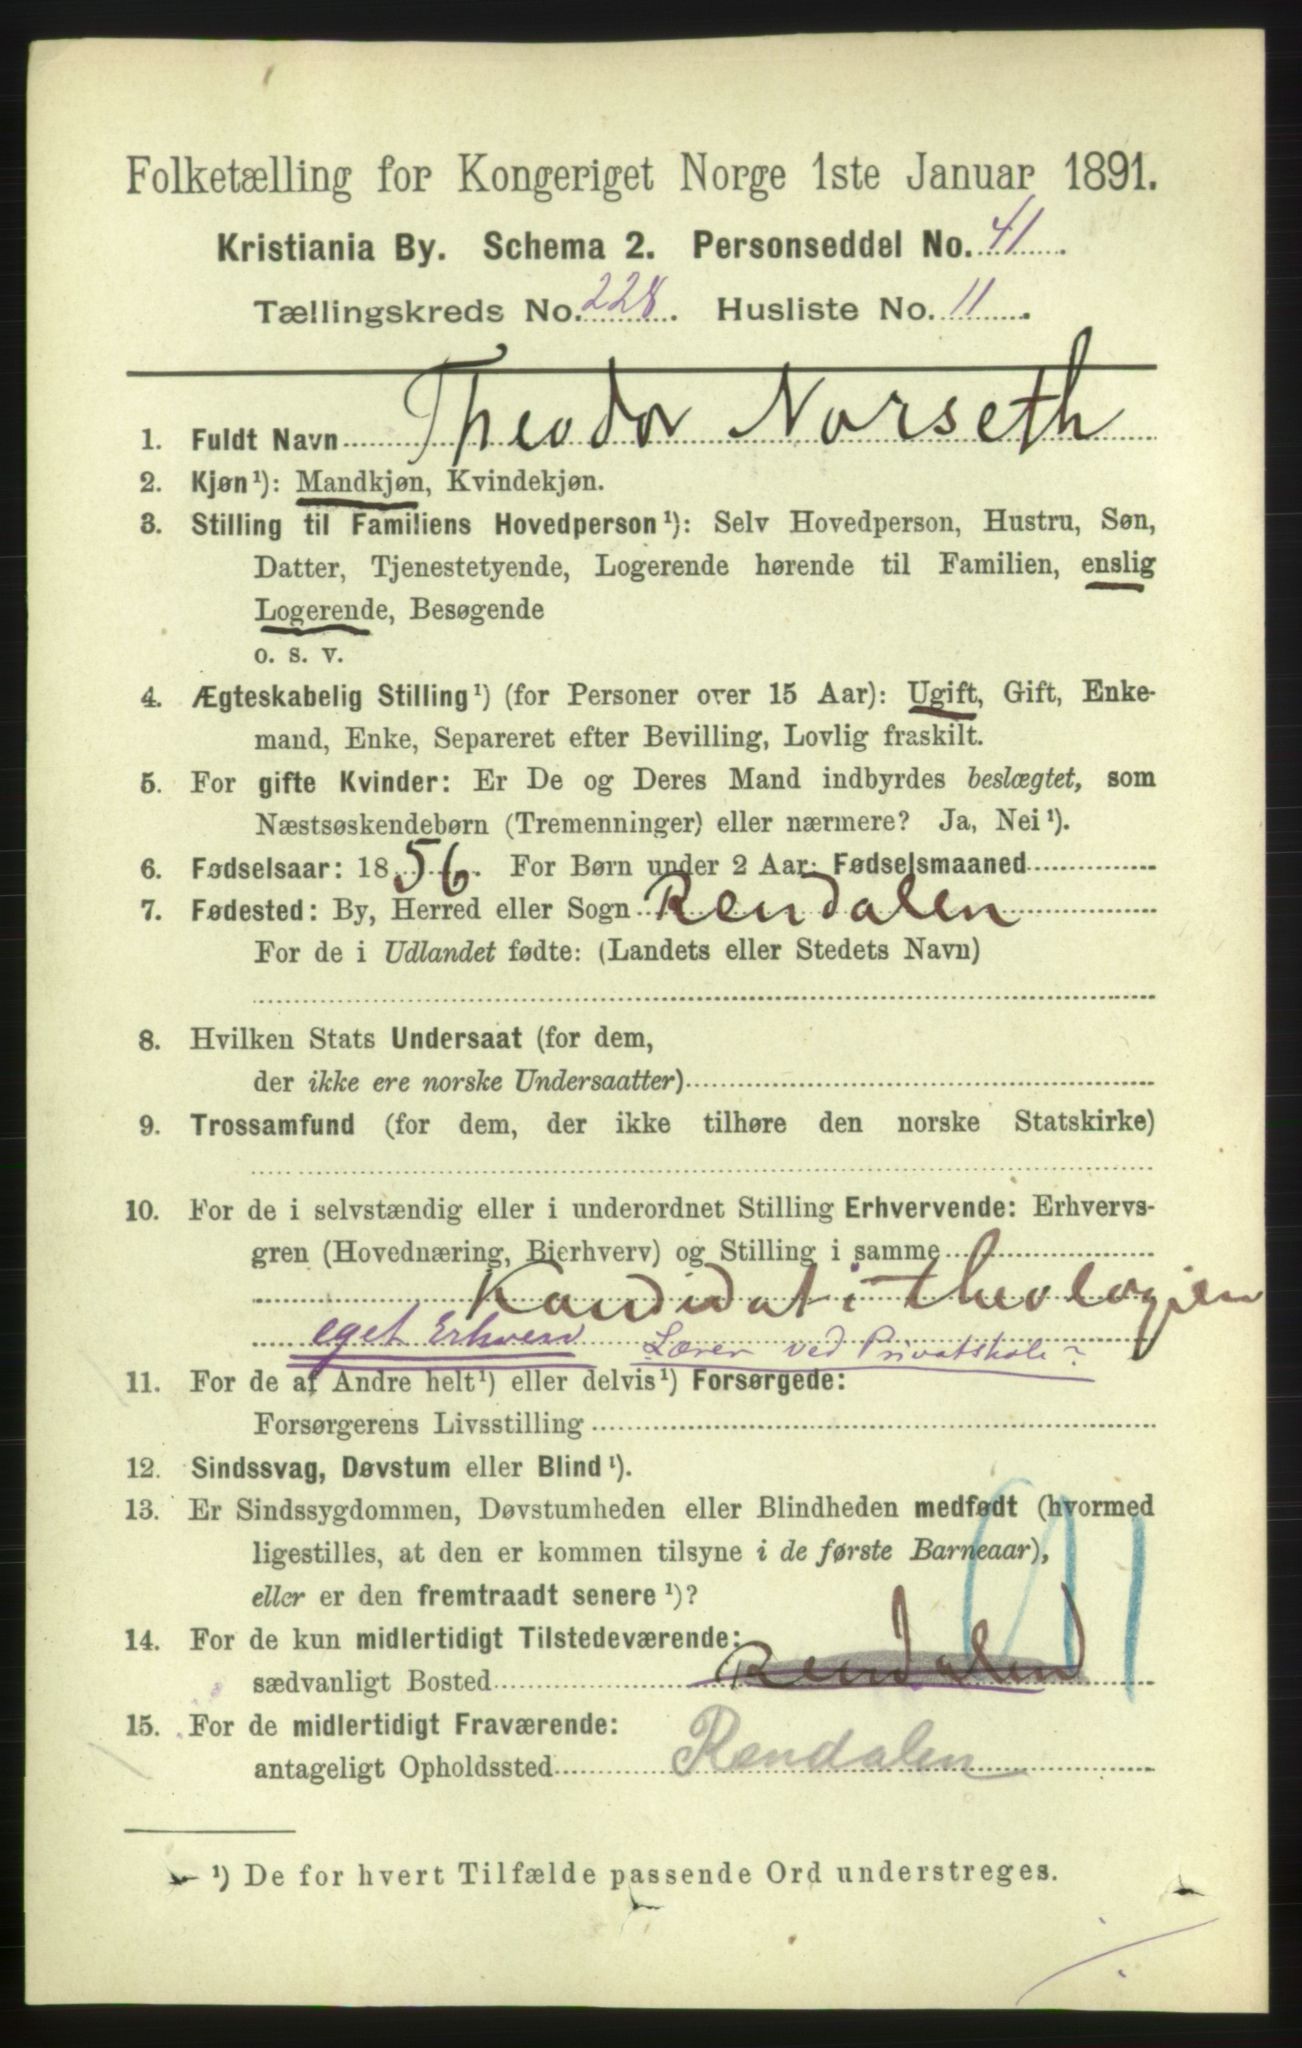 Folketælling for Kongeriget Norge 1ste Januar 1891.
Kristiania By. Schema 2. Personseddel No. 41.
Tællingskreds No. 228. Husliste No. 11.
1. Fuldt Navn Theodor Norseth
2. Kjøn¹): Mandkjøn, Kvindekjøn.
3. Stilling til Familiens Hovedperson¹): Selv Hovedperson, Hustru, Søn,
Datter, Tjenestetyende, Logerende hørende til Familien, enslig
Logerende, Besøgende
o. s. v.
4. Ægteskabelig Stilling¹) (for Personer over 15 Aar): Ugift, Gift, Enke-
mand, Enke, Separeret efter Bevilling, Lovlig fraskilt.
5. For gifte Kvinder: Er De og Deres Mand indbyrdes beslægtet, som
Næstsøskendebørn (Tremenninger) eller nærmere? Ja, Nei¹).
6. Fødselsaar: 1856. For Børn under 2 Aar: Fødselsmaaned
7. Fødested: By, Herred eller Sogn Rendalen
For de i Udlandet fødte: (Landets eller Stedets Navn)
8. Hvilken Stats Undersaat (for dem,
der ikke ere norske Undersaatter)
9. Trossamfund (for dem, der ikke tilhøre den norske Statskirke)
10. For de i selvstændig eller i underordnet Stilling Erhvervende: Erhvervs-
gren (Hovednæring, Bierhverv) og Stilling i samme
Kandidat i theologien
eget Erhverv Lærer ved Privatskole?
11. For de af Andre helt¹) eller delvis¹) Forsørgede:
Forsørgerens Livsstilling
12. Sindssvag, Døvstum eller Blind¹).
13. Er Sindssygdommen, Døvstumheden eller Blindheden medfødt (hvormed
ligestilles, at den er kommen tilsyne i de første Barneaar),
eller er den fremtraadt senere¹)?
14. For de kun midlertidigt Tilstedeværende:
sædvanligt Bosted Rendalen
15. For de midlertidigt Fraværende:
antageligt Opholdssted Rendalen
¹) De for hvert Tilfælde passende Ord understreges.